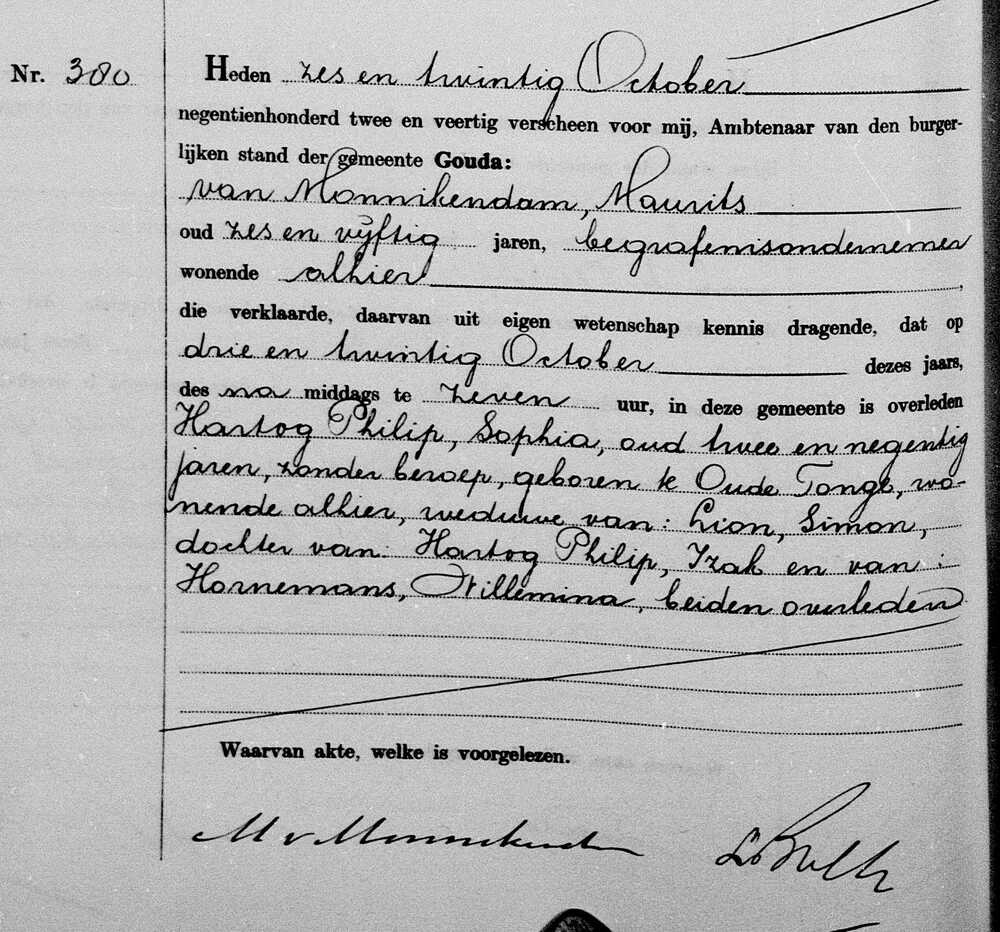 Nr. 380 Heden zes en twintig October
negentienhonderd twee en veertig verscheen voor mij, Ambtenaar van den burger-
lijken stand der gemeente Gouda:
van Monnikendam, Maurits
oud zes en vijftig jaren, begrafenisondernemer
wonende alhier,
die verklaarde, daarvan uit eigen wetenschap kennis dragende, dat op
drie en twintig October dezes jaars,
des na middags te zeven uur, in deze gemeente is overleden
Hartog Philip, Sophia, oud twee en negentig
jaren, zonder beroep, geboren te Oude Tonge, wo-
nende alhier, weduwe van: Lion, Simon,
dochter van: Hartog Philip, Izak en van:
Hornemans, Willemina, beiden overleden
Waarvan akte, welke is voorgelezen.
M v Monnikendam